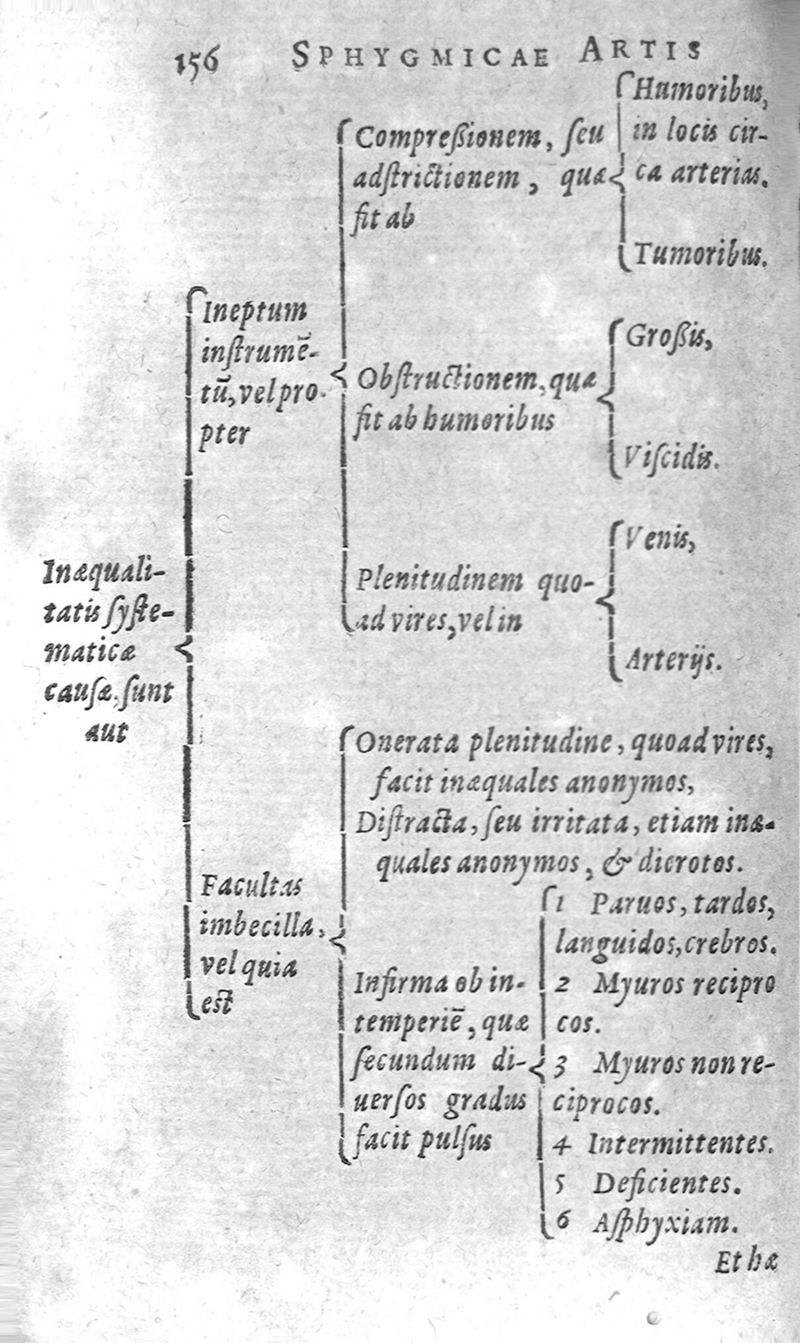 156 SPHYGMICAE ARTIS
Inæquali-
tatis ſyſte-
maticæ
cauſæ, ſunt
aut
Ineptum
inſtrumē-
tū, vel pro-
pter
Compreßionem, ſeu
adſtrictionem, quæ
fit ab
Humoribus,
in locis cir-
ca arterias.
Tumoribus.
Obſtructionem, quæ
fit ab humoribus
Großis,
Viſcidis.
Plenitudinem quo-
ad vires, vel in
Venis,
Arterijs.
Facultas
imbecilla,
vel quia
eſt
Onerata plenitudine, quoad vires,
facit inæquales anonymos,
Diſtracta, ſeu irritata, etiam inæ-
quales anonymos, & dicrotos.
Infirma ob in-
temperiē, quæ
ſecundum di-
uerſos gradus
facit pulſus
1 Paruos, tardos,
languidos, crebros.
2 Myuros recipro
cos.
3 Myuros non re-
ciprocos.
4 Intermittentes.
5 Deficientes.
6 Aſphyxiam.
Et hæ